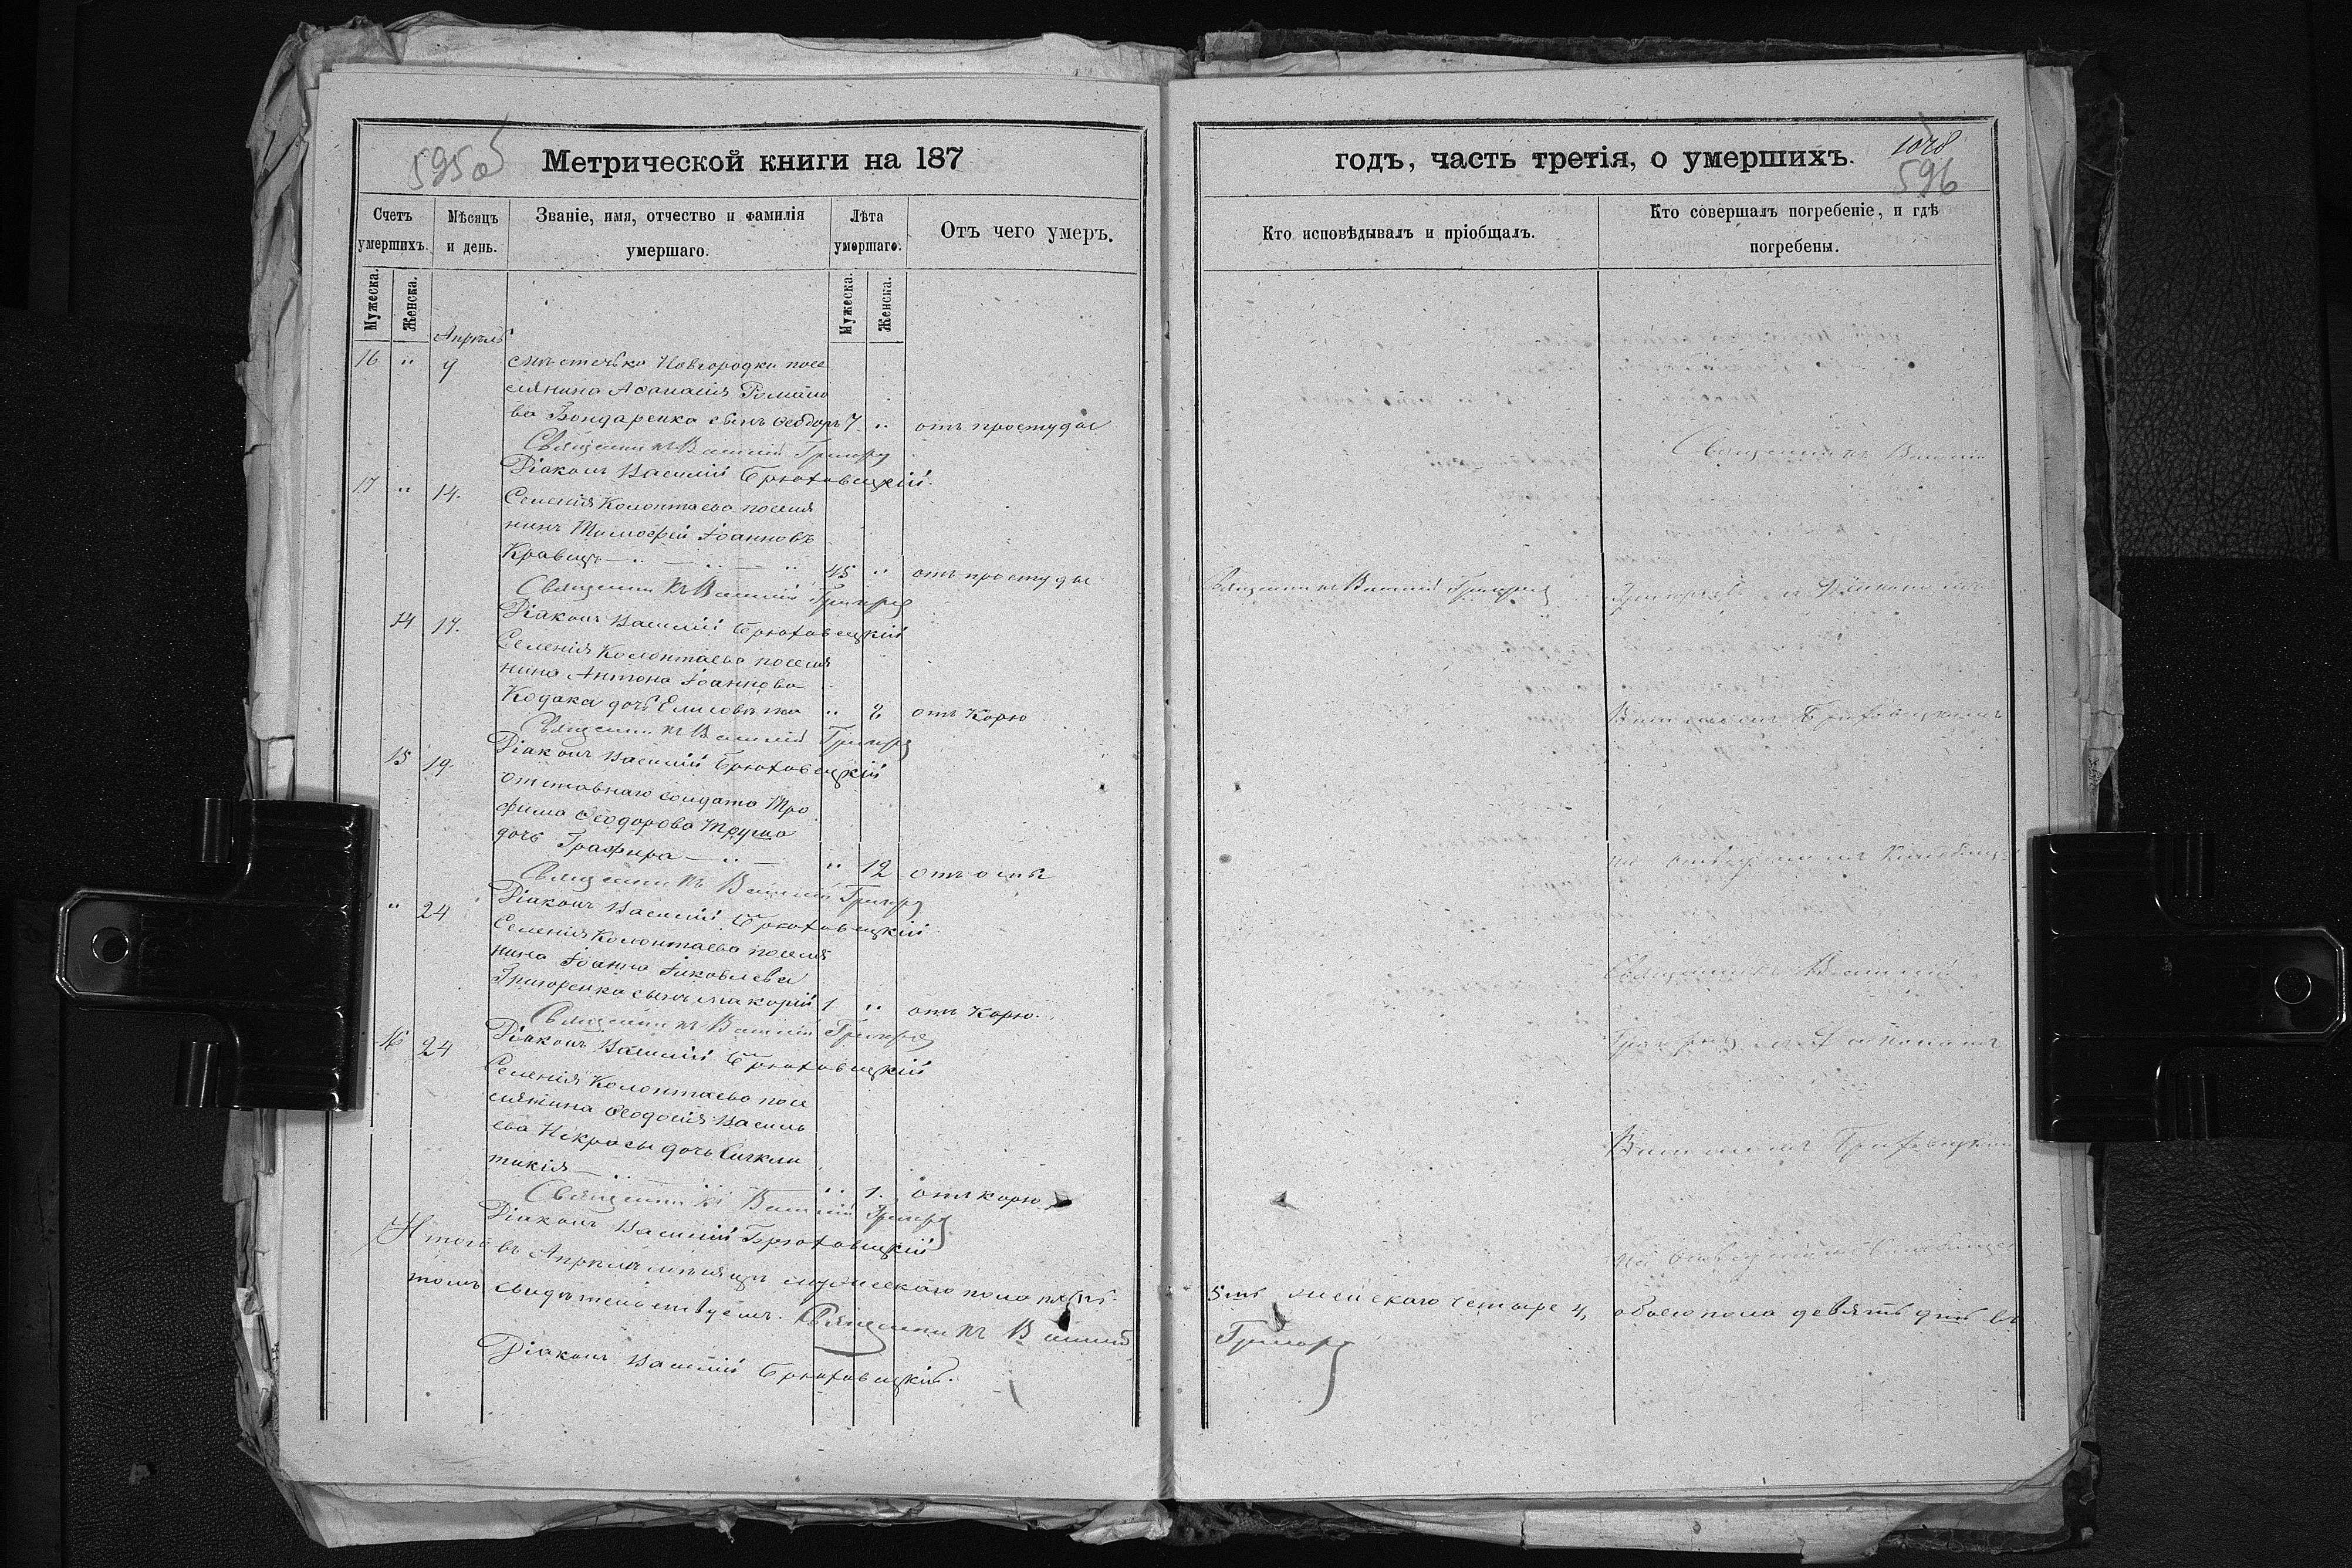 595об
Метрической книги на 187
Счетъ умершихъ.
Мужеска.
Женска.
Мѣсяцъ и день.
Званіе, имя, отчество и фамилія умершаго.
Лѣта умершаго.
Мужеска.
Женска.
Отъ чего умеръ.
Апрѣль
16 " 9 мѣстечка Новгородки посе
лянина Афанасія Романо
ва Бондаренка сынъ Феодоръ 7 " отъ простуды
Священникъ Василій Григор
Діаконъ Василій Брюховецкій.
17 " 14. Селенія Колонтаева поселя
нинъ Тимофей Іоанновъ
Кравецъ 45 " отъ простуды
Священникъ Василій Григор
Діаконъ Василій Брюховецкій
14 17. Селенія Колонтаева поселя
нина Антона Іоаннова
Кодака дочь Елисовета " 2 отъ Корю
Священникъ Василій Григор
Діаконъ Василій Брюховецкій
15 19. отставнаго солдата Тро
фима Феодорова Труша
дочь Графира " 12 отъ оспы
Священникъ Василій Григор
Діаконъ Василій Брюховецкій
" 24 Селенія Колонтаева поселя
нина Іоанна Іаковлева
Григоренка сынъ Макарій 1 " отъ Корю.
Священникъ Василій Григор
Діаконъ Василій Брюховецкій
16 24 Селенія Колонтаева посе
лянина Феодосія Василь
ева Некрасы дочь Сигкли
тикія " 1. отъ корю
Священникъ Василій Григор
Діаконъ Василій Брюховецкій
Итого въ Апрѣлѣ мѣсяцѣ мужескаго пола пять
томъ свидѣтельствуемъ. Священникъ Василій
Діаконъ Василій Брюховецкій.
годъ, часть третія, о умершихъ.
1078
596
Кто исповѣдывалъ и пріобщалъ.
Кто совершалъ погребеніе, и гдѣ погребены.
Священникъ Василій
Священникъ Василій Григор
Діакономъ
Василіемъ Брюховецкимъ
на кладбищѣ
Священникъ Василій
Діакономъ
Василіемъ Брюховецкимъ
на кладбищѣ
5ть женскаго четыре 4, обоего пола девять въ
Григор